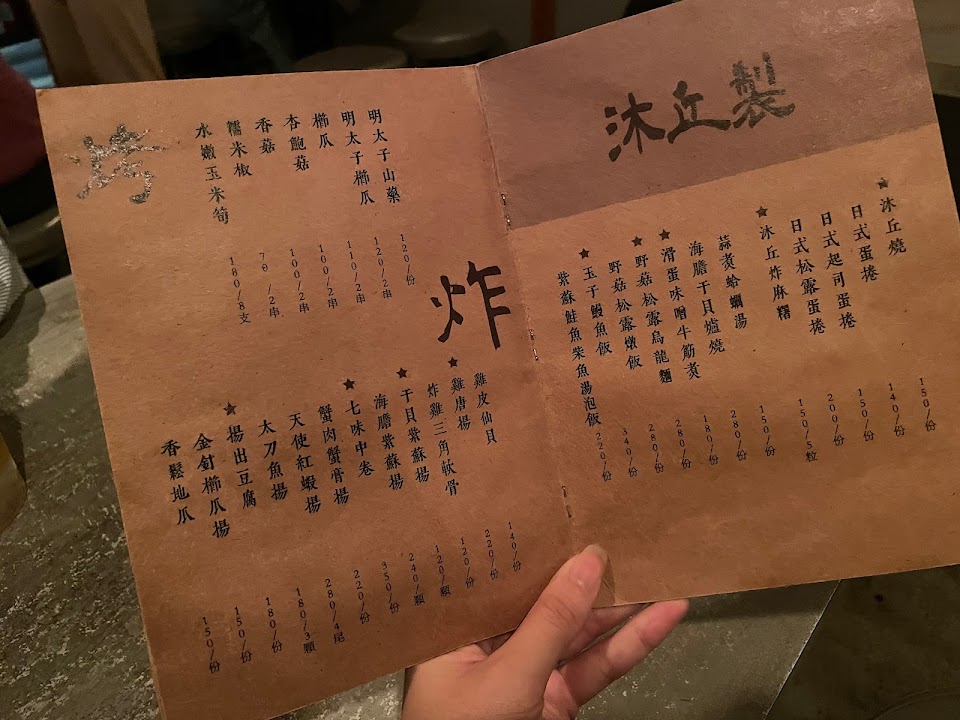 沐丘製
★沐丘燒 150/份
日式蛋捲 140/份
日式起司蛋捲 150/份
日式松露蛋捲 200/份
★沐丘炸麻糬 150/5粒
蒜煮蛤蠣湯 150/份
海膽干貝爐燒 280/份
★滑蛋味噌牛筋煮 180/份
★野菇松露烏龍麵 280/份
野菇松露燉飯 280/份
★玉子鰻魚飯 340/份
紫蘇鮭魚柴魚湯泡飯 220/份
炸
雞皮仙貝 140/份
★雞唐揚 220/份
炸雞三角軟骨 120/份
★干貝紫蘇揚 120/顆
海膽紫蘇揚 240/顆
★七味中卷 350/份
蟹肉蟹膏揚 220/份
天使紅蝦揚 280/4尾
太刀魚揚 180/3顆
★揚出豆腐 180/份
金針櫛瓜揚 150/份
香鬆地瓜 150/份
烤
明太子山藥 120/份
明太子櫛瓜 120/2串
櫛瓜 110/2串
杏鮑菇 100/2串
香菇 100/2串
糯米椒 70/2串
水嫩玉米筍 180/8支